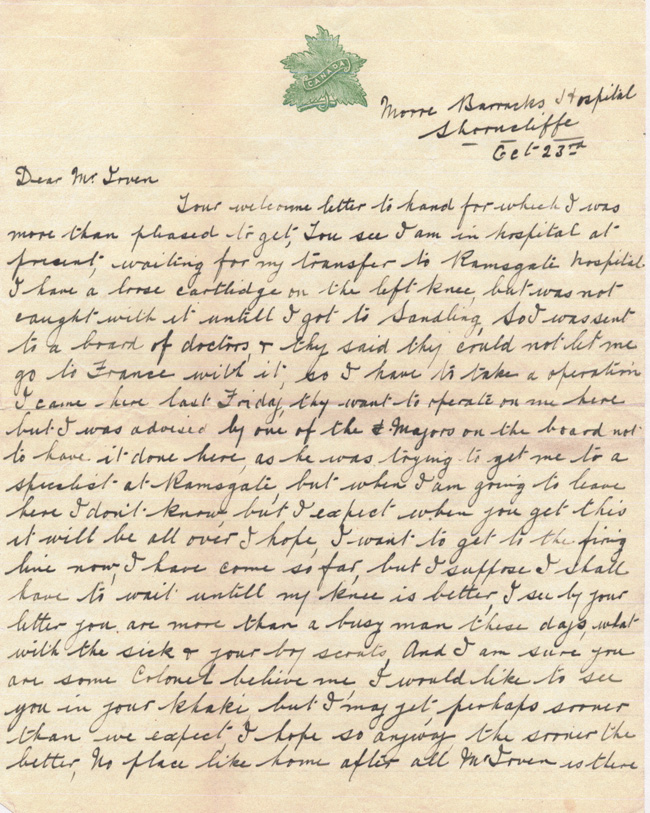 CANADA
Moore Barracks Hospital
Shorncliffe
Oct 23rd
Dear Mr Irven
Your welcome letter to hand for which I was
more than pleased to get, You see I am in hospital at
present, waiting for my transfer to Ramsgate Hospital
I have a loose cartlidge on the left knee, but was not
caught with it untill I got to Sandling, So I was sent
to a board of doctors, & thy said thy could not let me
go to France with it, so I have to take a operation
I came here last Friday, thy want to operate on me here
but I was advised by one of the Majors on the board not
to have it done here, as he was trying to get me to a
specilist at Ramsgate, but when I am going to leave
here I don't know, but I expect when you get this
it will be all over I hope, I want to get to the firing
line now, I have come so far, but I suppose I shall
have to wait untill my knee is better, I see by your
letter you are more than a busy man these days, what
with the sick & your boy scouts, And I am sure you
are some Colonel believe me, I would like to see
you in your khaki but I may yet, perhaps sooner
than we expect I hope so anyway the sooner the
better, No place like home after all Mr Irven is there